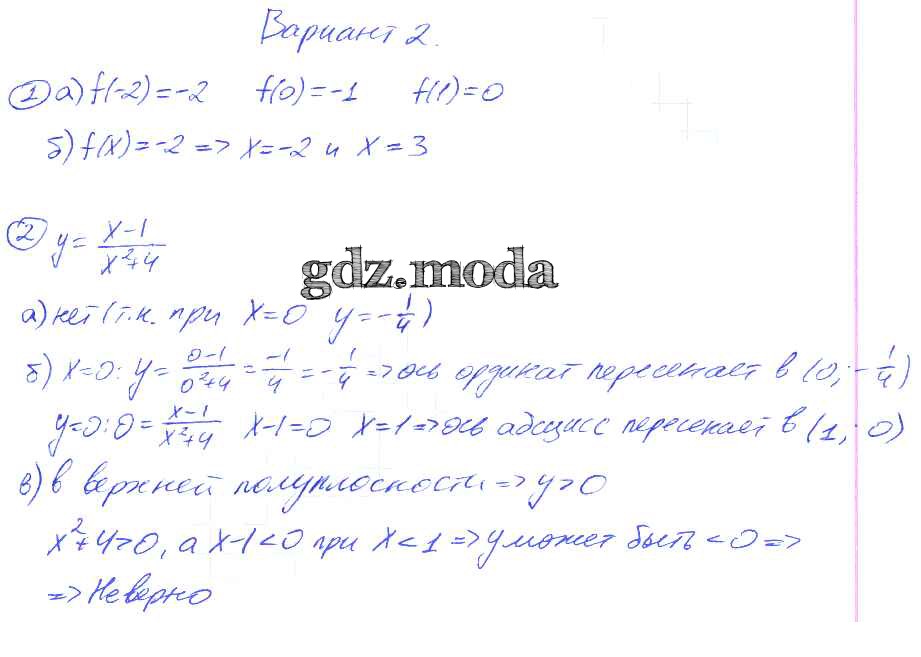 Вариант 2.
① а) f(-2)=-2 f(0)=-1 f(1)=0
б) f(x)=-2 => x=-2 и x=3
② y = (x-1)/(x²+4)
gdz.moda
а) нет (т.к. при x=0 y=-1/4)
б) x=0: y = (0-1)/(0²+4) = -1/4 = -1/4 => ось ординат пересекает в (0; -1/4)
y=0: 0 = (x-1)/(x²+4) x-1=0 x=1 => ось абсцисс пересекает в (1; 0)
в) в верхней полуплоскости => y>0
x²+4>0, а x-1<0 при x<1 => y может быть <0 =>
=> Неверно